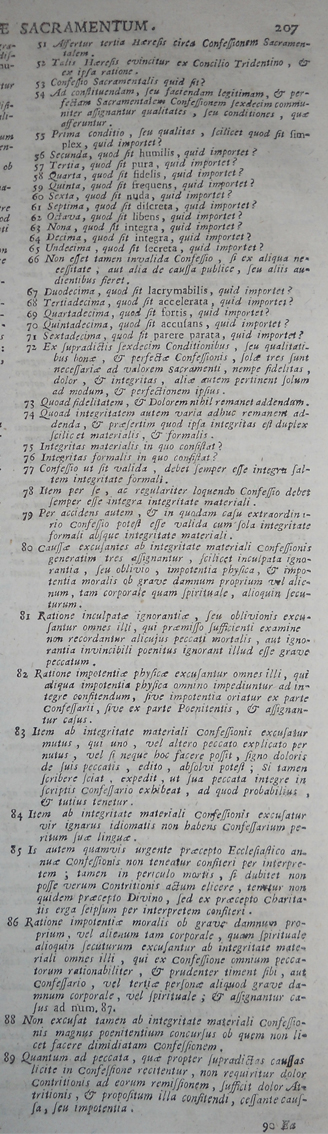 Æ SACRAMENTUM. 207
51 Assertur tertia Hæresis circa Confessionem Sacramen-
talem.
52 Talis Hæresis evincitur ex Concilio Tridentino, &
ex ipsa ratione.
53 Confessio Sacramentalis quid sit?
54 Ad constituendam, seu faciendam legitimam, & per-
fectam Sacramentalem Confessionem sexdecim commu-
niter assignantur qualitates, seu conditiones, quæ
afferuntur.
55 Prima conditio, seu qualitas, scilicet quod sit sim-
plex, quid importet?
56 Secunda, quod sit humilis, quid importet?
57 Tertia, quod sit pura, quid importet?
58 Quarta, quod sit fidelis, quid importet?
59 Quinta, quod sit frequens, quid importet?
60 Sexta, quod sit nuda, quid importet?
61 Septima, quod sit discreta, quid importet?
62 Octava, quod sit libens, quid importet?
63 Nona, quod sit integra, quid importet?
64 Decima, quod sit integra, quid importet?
65 Undecima, quod sit secreta, quid importet?
66 Non esset tamen invalida Confessio, si ex aliqua ne-
cessitate, aut alia de caussa publice, seu aliis au-
dientibus fieret.
67 Duodecima, quod sit lacrymabilis, quid importet?
68 Tertiadecima, quod sit accelerata, quid importet?
69 Quartadecima, quod sit fortis, quid importet?
70 Quintadecima, quod sit accusans, quid importet?
71 Sextadecima, quod sit parere parata, quid importet?
72 Ex supradictis sexdecim Conditionibus, seu qualitati-
bus bonæ, & perfectæ Confessionis, solæ tres sunt
necessariæ ad valorem Sacramenti, nempe fidelitas,
dolor, & integritas, aliæ autem pertinent solum
ad modum, & perfectionem ipsius.
73 Quoad fidelitatem, & Dolorem nihil remanet addendum.
74 Quoad integritatem autem varia adhuc remanent ad-
denda, & præsertim quod ipsa integritas est duplex
scilicet materialis, & formalis.
75 Integritas materialis in quo consistat?
76 Integritas formalis in quo consistat?
77 Confessio ut sit valida, debet semper esse integra sal-
tem integritate formali.
78 Item per se, ac regulariter loquendo Confessio debet
semper esse integra integritate materiali.
79 Per accidens autem, & in quodam casu extraordina-
rio Confessio potest esse valida cum sola integritate
formali absque integritate materiali.
80 Caussæ excusantes ab integritate materiali Confessionis
generatim tres assignantur, scilicet inculpata igno-
rantia, seu oblivio, impotentia physica, & impo-
tentia moralis ob grave damnum proprium vel alie-
num, tam corporale quam spirituale, alioquin secu-
turum.
81 Ratione inculpatæ ignorantiæ, seu oblivionis excu-
santur omnes illi, qui præmisso sufficienti examine
non recordantur alicujus peccati mortalis, aut igno-
rantia invincibili poenitus ignorant illud esse grave
peccatum.
82 Ratione impotentiæ physicæ excusantur omnes illi, qui
aliqua impotentia physica omnino impediuntur ad in-
tegre confitendum, sive impotentia oriatur ex parte
Confessarii, sive ex parte Poenitentis, & assignan-
tur casus.
83 Item ab integritate materiali Confessionis excusatur
mutus, qui uno, vel altero peccato explicato per
nutus, vel si neque hoc facere possit, signo doloris
de suis peccatis, edito, absolvi potest; Si tamen
scribere sciat, expedit, ut sua peccata integre in
scriptis Confessario exhibeat, ad quod probabilius,
& tutius tenetur.
84 Item ab integritate materiali Confessionis excusatur
vir ignarus idiomatis non habens Confessarium pe-
ritum suæ linguæ.
85 Is autem quamvis urgente præcepto Ecclesiastico an-
nuæ Confessionis non teneatur confiteri per interpre-
tem; tamen in periculo mortis, si dubitet non
posse verum Contritionis actum elicere, tenetur non
quidem præcepto Divino, sed ex præcepto Charita-
tis erga seipsum per interpretem confiteri.
86 Ratione impotentiæ moralis ob grave damnum pro-
prium, vel alienum tam corporale, quam spirituale
alioquin secuturum excusantur ab integritate mate-
riali omnes illi, qui ex Confessione omnium pecca-
torum rationabiliter, & prudenter timent sibi, aut
Confessario, vel tertiæ personæ aliquod grave da-
mnum corporale, vel spirituale; & assignantur ca-
sus ad num. 87.
88 Non excusat tamen ab integritate materiali Confessio-
nis magnus poenitentium concursus ob quem non li-
cet facere dimidiatam Confessionem.
89 Quantum ad peccata, quæ propter supradictas caussas
licite in Confessione reticentur, non requiritur dolor
Contritionis ad eorum remissionem, sufficit dolor At-
tritionis, & propositum illa confitendi, cessante caus-
sa, seu impotentia.
90 Ea